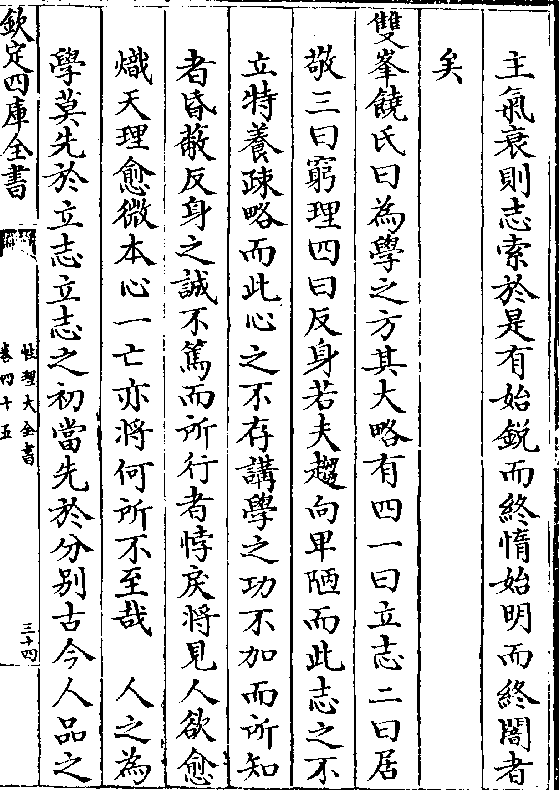 主氣衰則志索於是有始鋭而終惰始明而終闇者
矣
雙峯饒氏曰為學之方其大略有四一曰立志二曰居
敬三曰窮理四曰反身若夫趨向卑陋而此志之不
立特養疎略而此心之不存講學之功不加而所知
者昏蔽反身之誠不篤而所行者悖戾將見人欲愈
熾天理愈微本心一亡亦將何所不至哉　人之為
學莫先於立志立志之初當先於分别古今人品之
欽定四庫全書
性理大全書
卷四十五
三十四